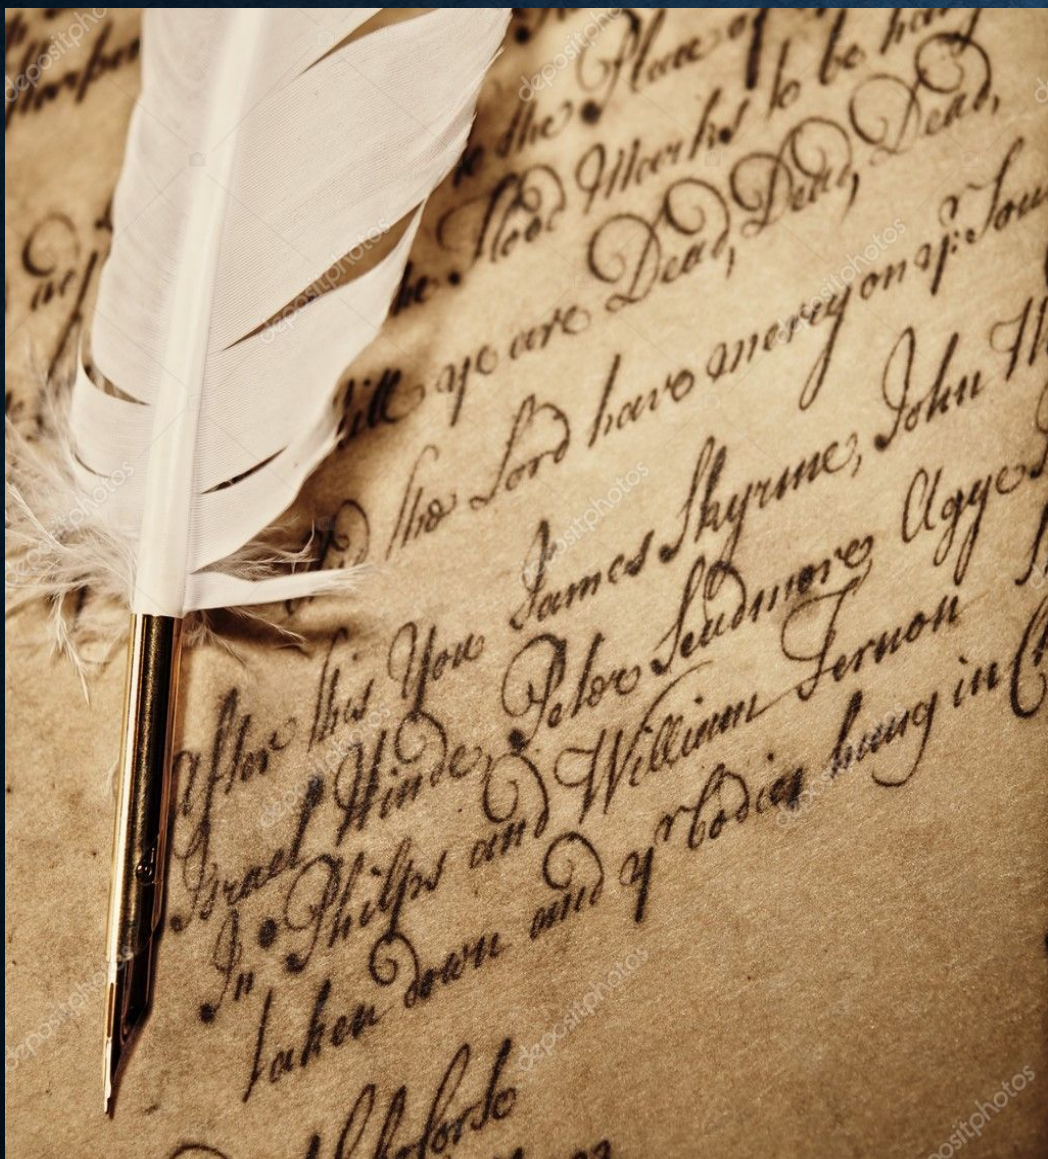 the Place of
the Flood Marks to be hang
till ye are Dead, Dead, Dead,
the Lord have mercy on yr. Sou
After this You James Skyrme, John
Israel Hinde, Peter Scudmore, Agge
In. Philps and William Fernon
taken down and yr bodies hung in C